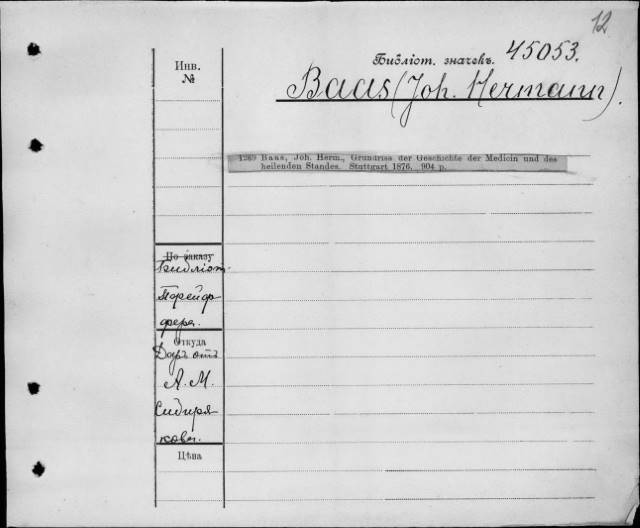 12
Библіот. значекъ. 45053.
Инв.
№
Baas (Joh. Hermann).
1269 Baas, Joh. Herm., Grundriss der Geschichte der Medicin und des
heilenden Standes. Stuttgart 1876. 904 p.
По заказу
Библіот.
фера.
Откуда
Даръ отъ
А. М.
Сибиря
кова.
Цѣна